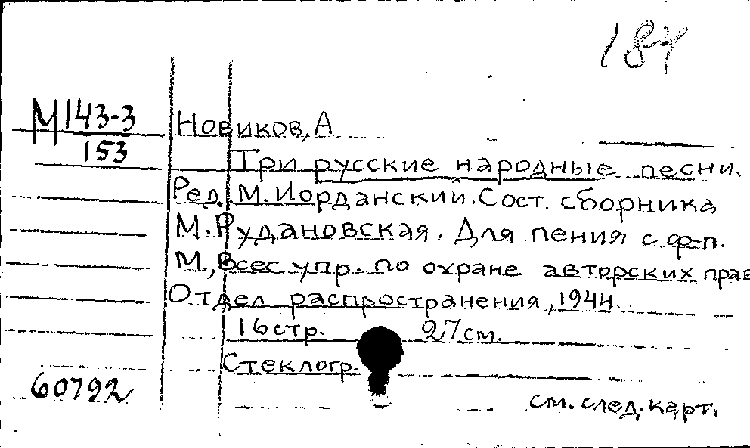 184
М143-3
153
Новиков, А
Три русские народные песни.
Ред. М. Иорданский. Сост. сборника
М. Рудановская. Для пения с ф-п.
М., Всес упр. по охране авторских прав
Отдел распространения, 1944
16 стр. 27 см.
Стеклогр.
60792
см. след. карт.